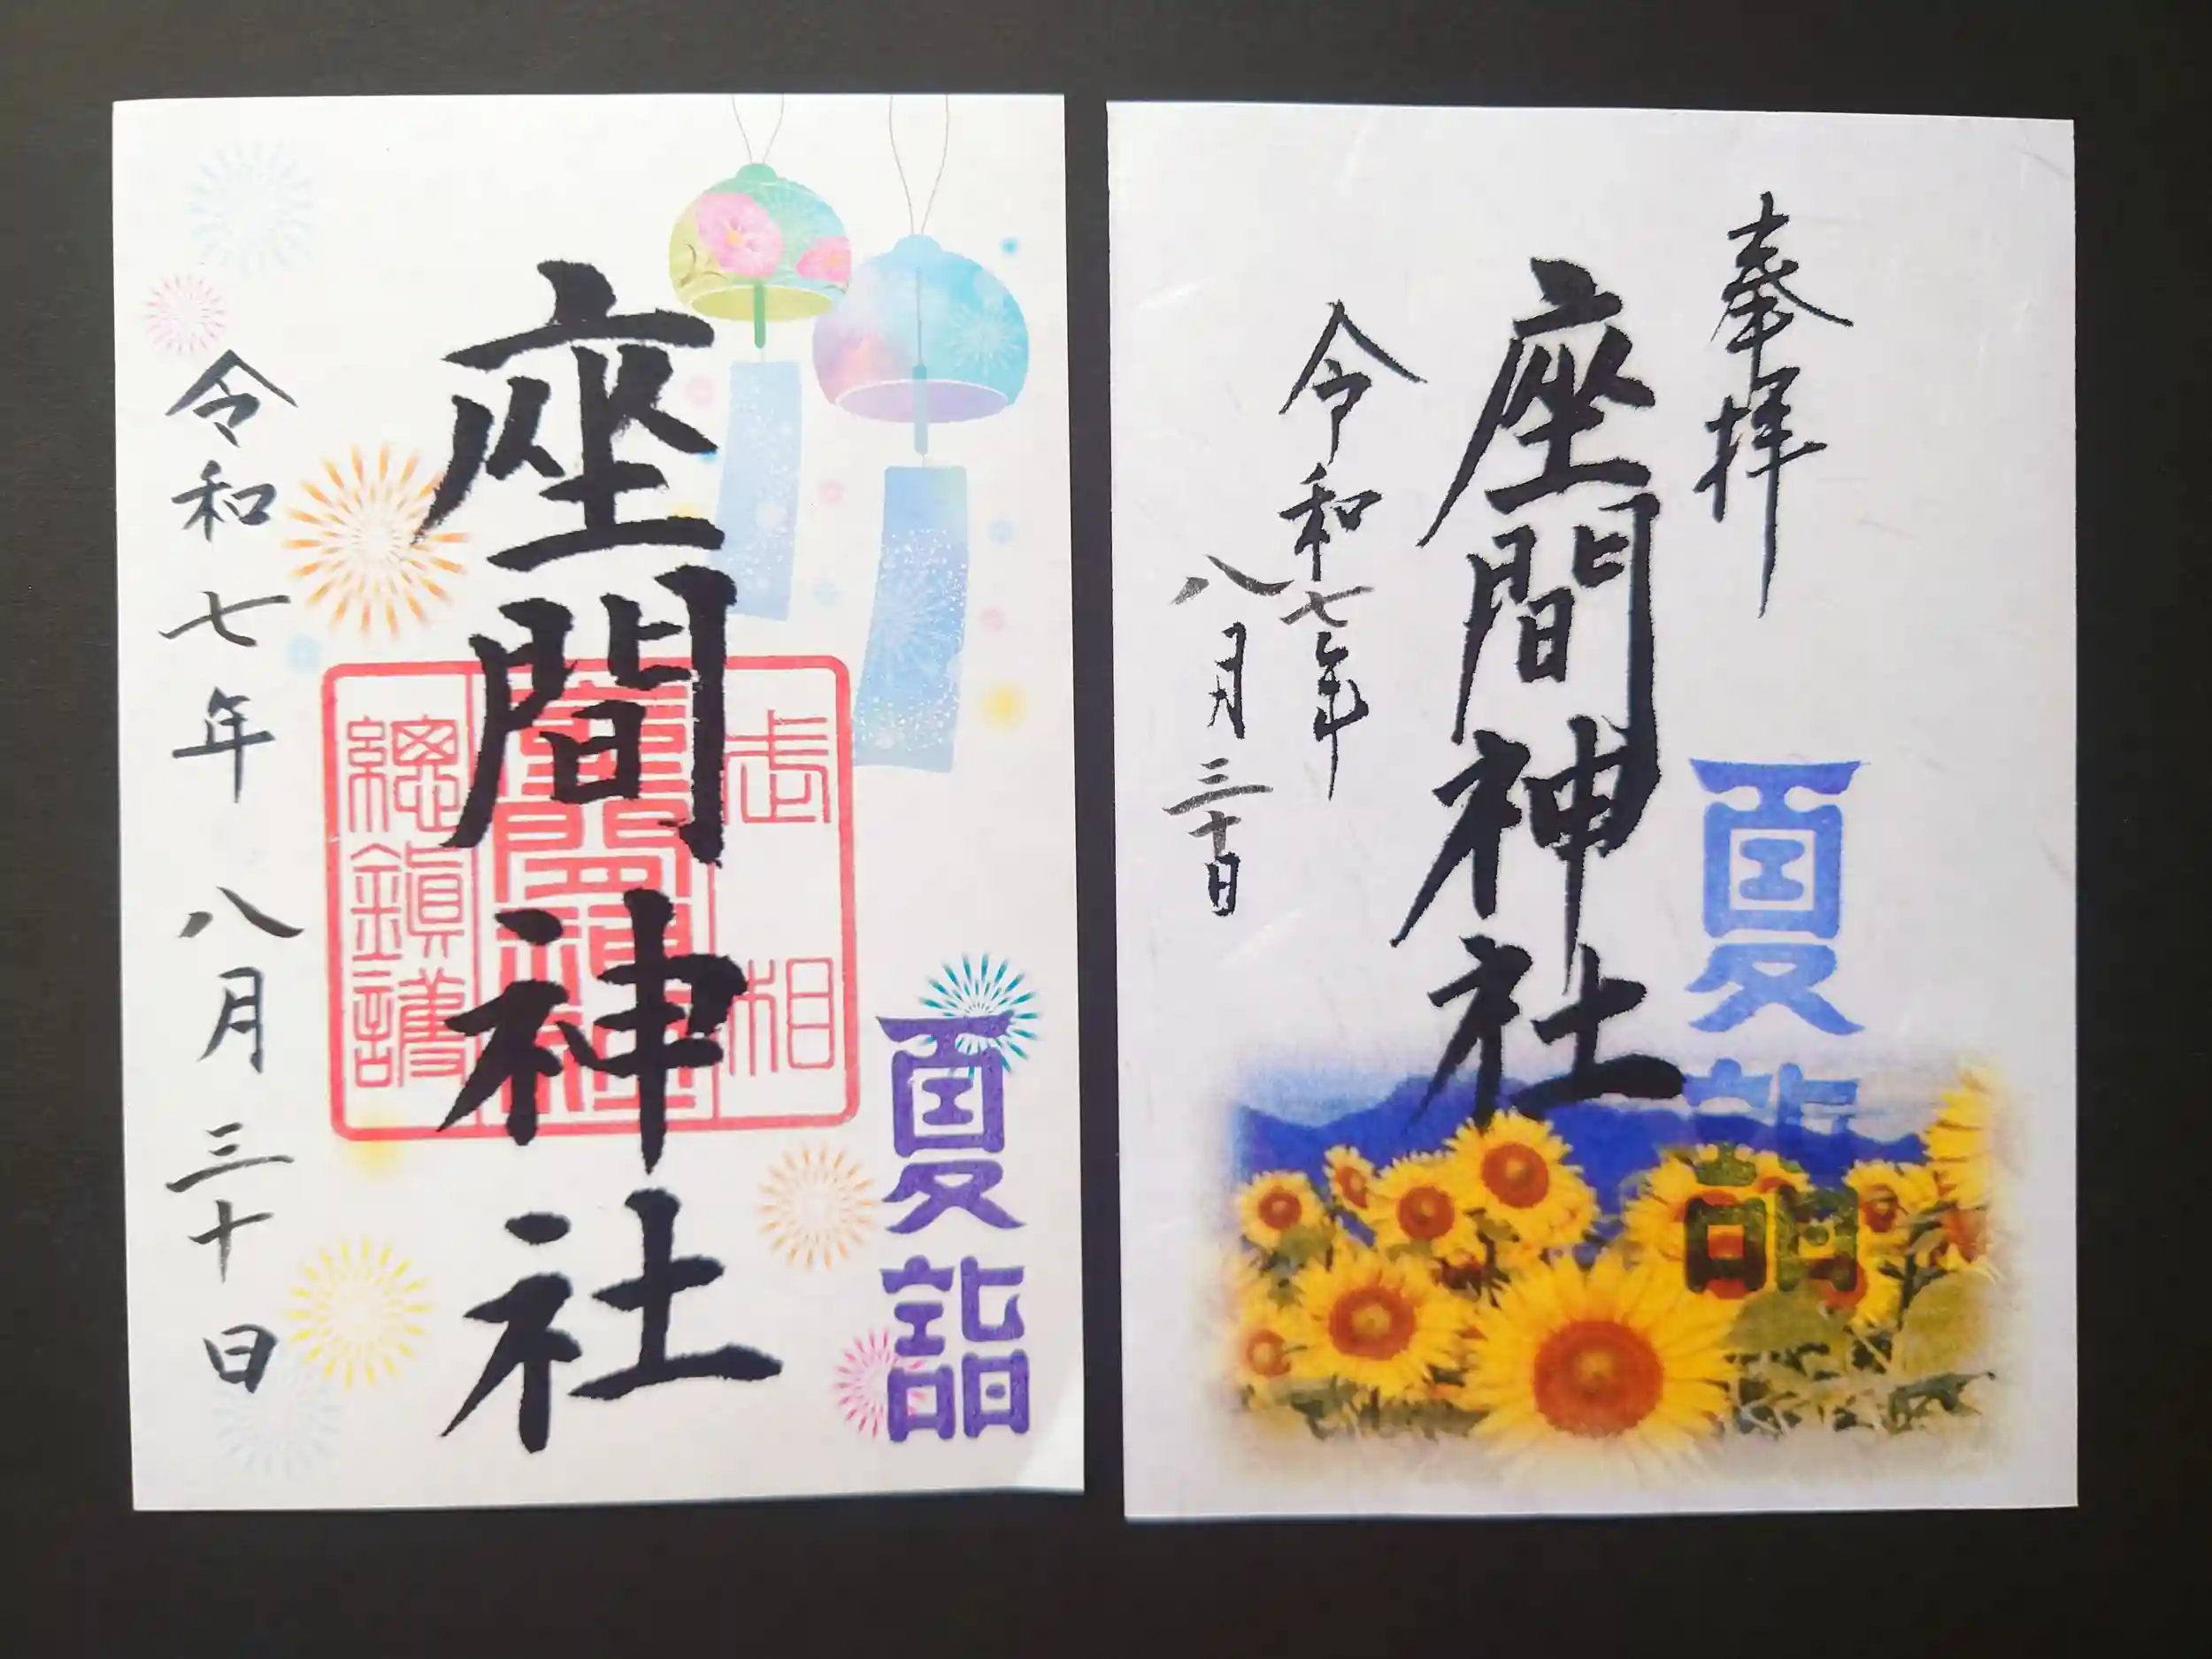 座間神社
令和七年八月三十日
武相
總鎮護
夏詣
奉拝
座間神社
令和七年
八月三十日
夏詣